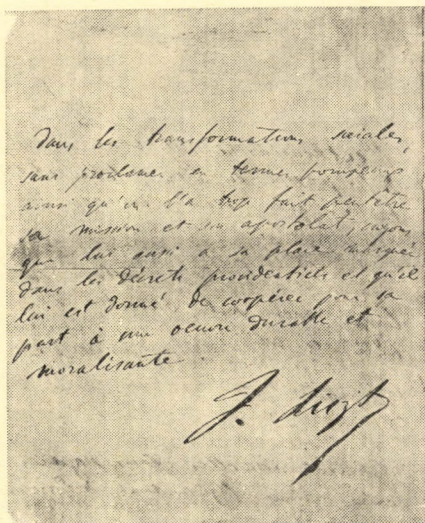 Dans les transformations sociales,
sans proclamer en termes pompeux
ainsi qu'on l'a trop fait peut être
sa mission et son apostolat, croyons
que lui aussi a sa place marquée
dans les décrets providentiels et qu'il
lui est donné de coopérer pour sa
part à une oeuvre durable et
moralisante.
F. Liszt